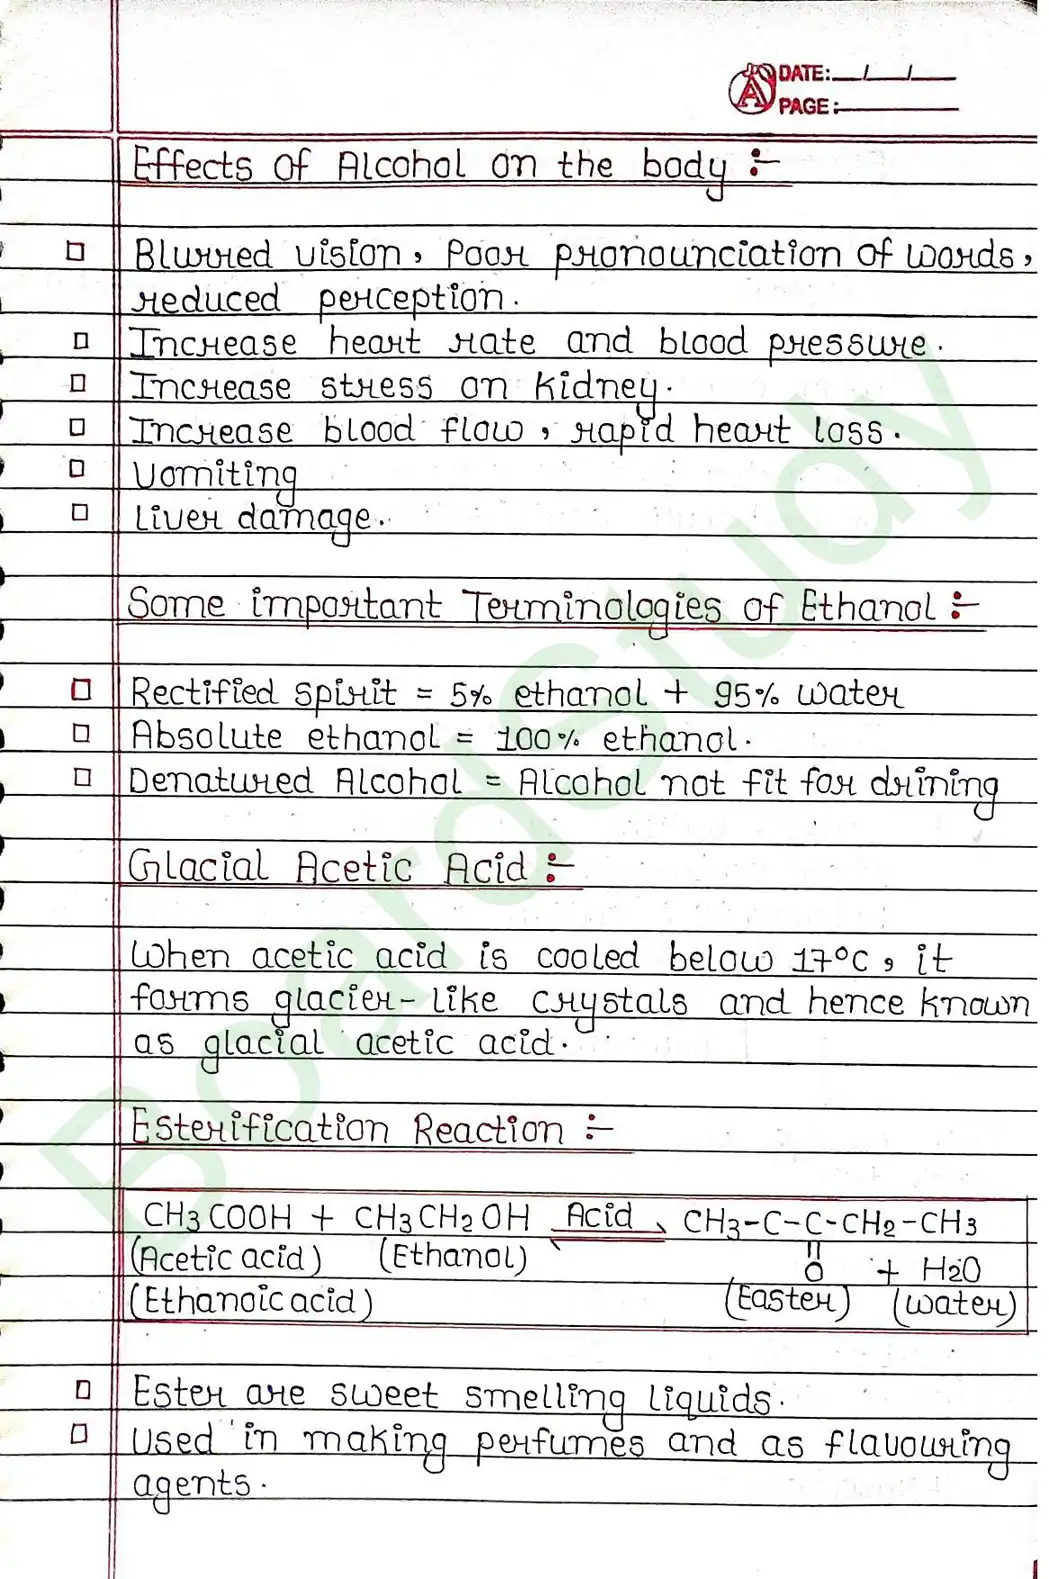 DATE: / /
PAGE:
Effects of Alcohol on the body :-
Blurred vision, Poor pronounciation of words,
reduced perception.
Increase heart rate and blood pressure.
Increase stress on kidney.
Increase blood flow, rapid heart loss.
Vomiting
Liver damage.
Some important Terminologies of Ethanol :-
Rectified spirit = 5% ethanol + 95% water
Absolute ethanol = 100% ethanol.
Denatured Alcohol = Alcohol not fit for drining
Glacial Acetic Acid :-
When acetic acid is cooled below 17°C, it
forms glacier-like crystals and hence known
as glacial acetic acid.
Esterification Reaction :-
CH3COOH + CH3CH2OH Acid CH3-C-C-CH2-CH3
(Acetic acid) (Ethanol) O + H2O
(Ethanoic acid) (Easter) (water)
Ester are sweet smelling liquids.
Used in making perfumes and as flavouring
agents.
BoardStudy